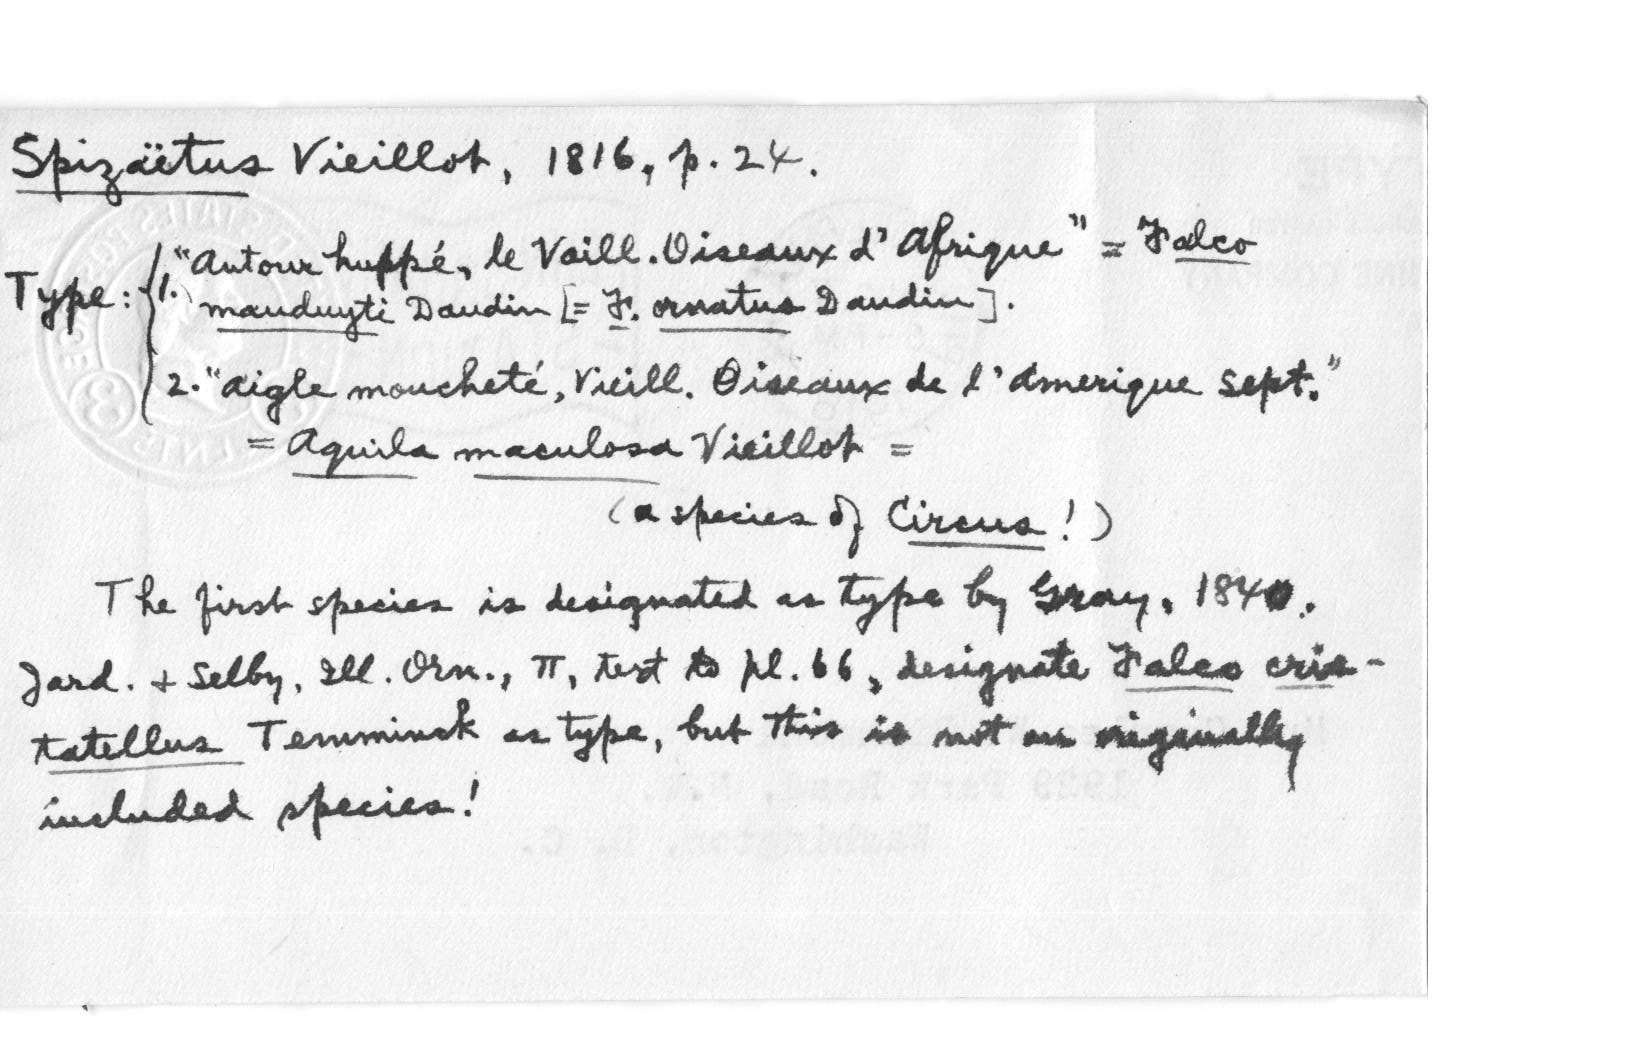 Spizäetus Vieillot, 1816, p. 24.
Type: 1. "Autour huppé, le Vaill. Oiseaux d'Afrique" = Falco
mauduyti Daudin [= F. ornatus Daudin].
2. "aigle moucheté, Vieill. Oiseaux de l'Amerique Sept."
= Aquila maculosa Vieillot =
(a species of Circus!)
The first species is designated as type by Gray, 1840.
Jard. + Selby, Ill. Orn., II, text to pl. 66, designate Falco cris-
tatellus Temminck as type, but this is not an originally
included species!
1929 Park Road, N.W.
Washington, D. C.